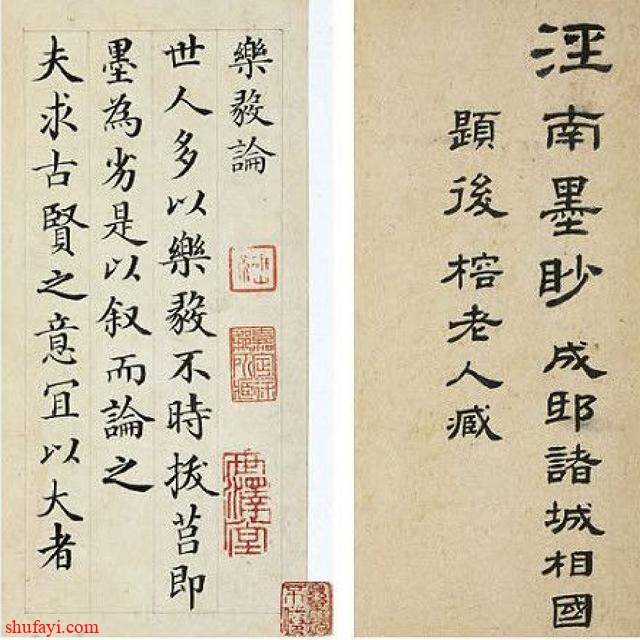 涇南墨眇 成邸諸城相國
題後榕老人臧
樂毅論
世人多以樂毅不時拔莒即
墨為劣是以叙而論之
夫求古賢之意宜以大者
shufayi.com